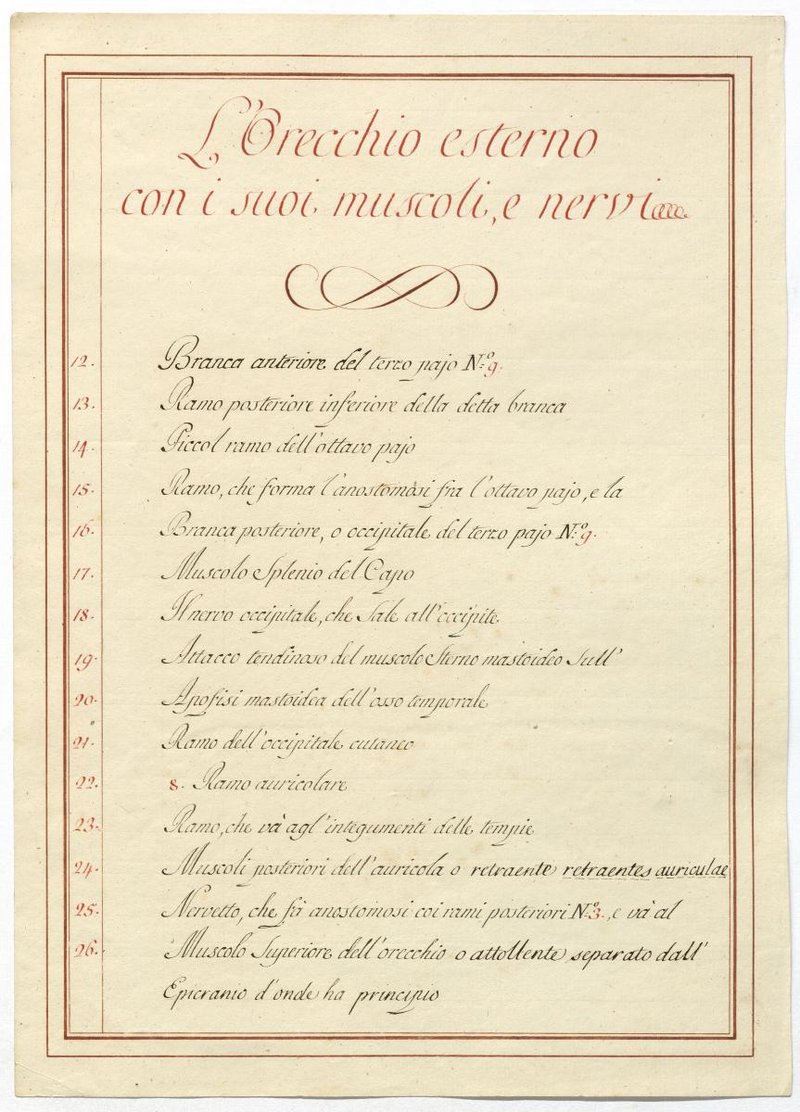 L'Orecchio esterno
con i suoi muscoli, e nervi
12. Branca anteriore del terzo pajo N.o 9.
13. Ramo posteriore inferiore della detta branca
14. Piccol ramo dell'ottavo pajo
15. Ramo, che forma l'anostomosi fra l'ottavo pajo, e la
16. Branca posteriore, o occipitale del terzo pajo N.o 9.
17. Muscolo Splenio del Capo
18. Il nervo occipitale, che Sale all'occipite
19. Attacco tendinoso del muscolo Sterno mastoideo Sull'
20. Apofisi mastoidea dell'osso temporale
21. Ramo dell'occipitale cutaneo
22. 8. Ramo auricolare
23. Ramo, che và agl'integumenti delle tempie
24. Muscoli posteriori dell'auricola o retraente retraentes auriculae
25. Nervetto, che fà anostomosi coi rami posteriori N.o 3., e và al
26. Muscolo Superiore dell'orecchio o attollente separato dall'
Epicranio d'onde ha principio